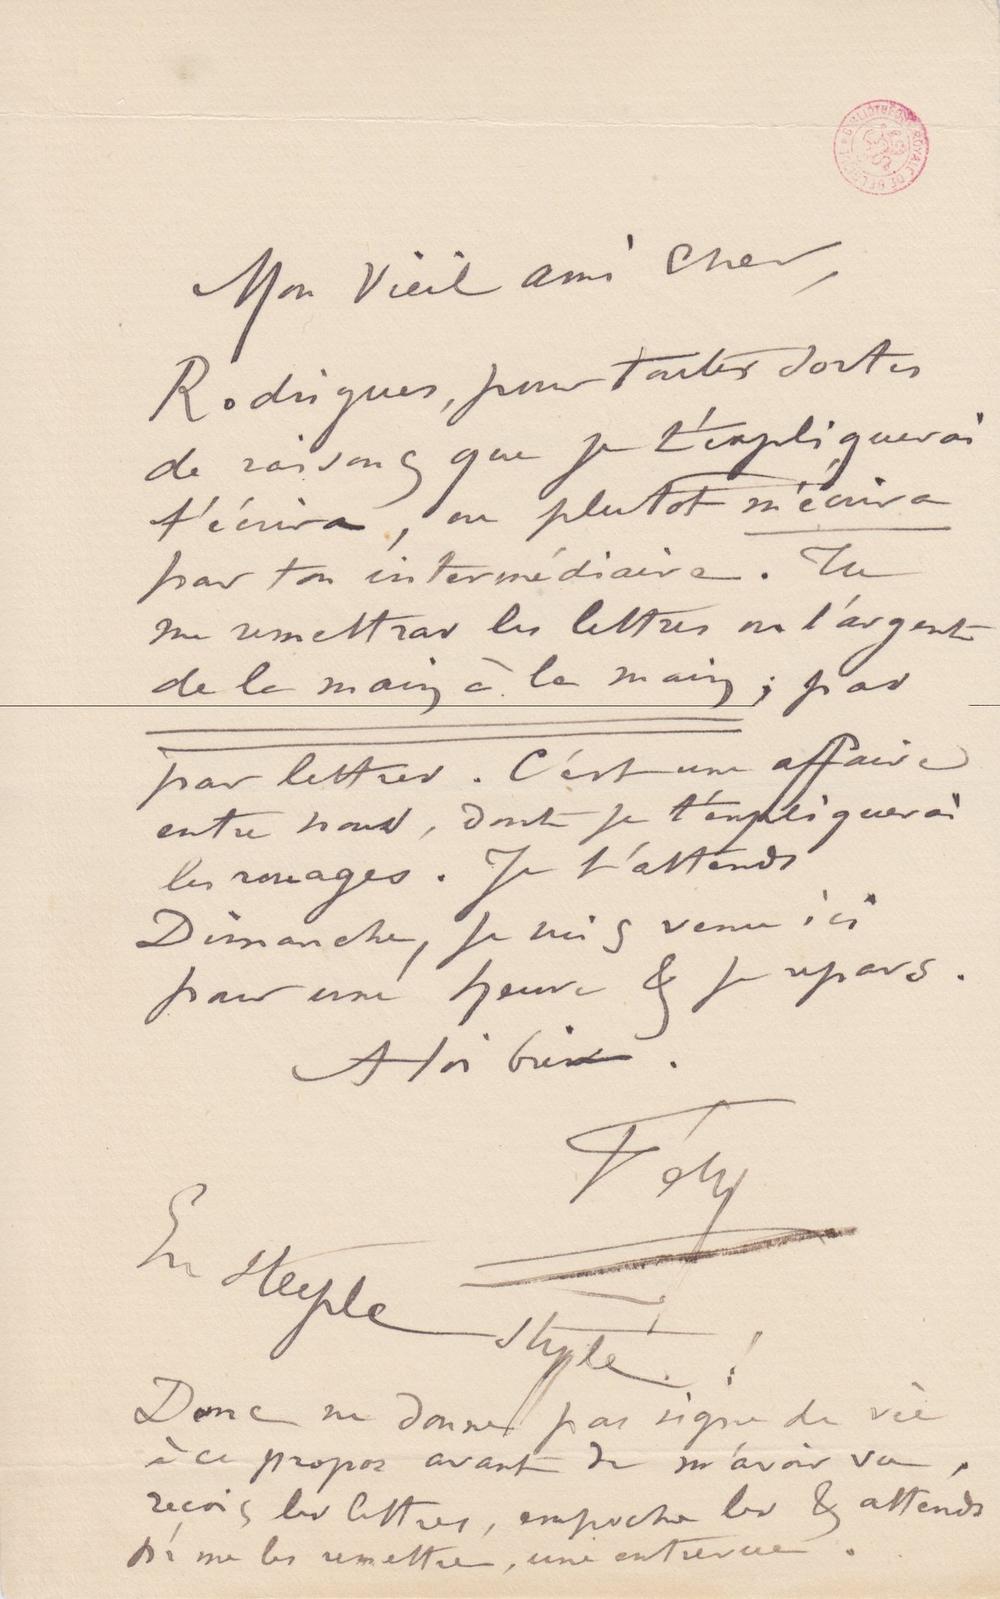 BIBLIOTHÈQUE ROYALE DE BELGIQUE
Mon Vieil ami cher,
Rodrigues, pour toutes sortes
de raisons que je t'expliquerai
t'écrira, ou plutot m'écrira
par ton intermédiaire. Tu
me remettras les lettres ou l'argent
de la main à la main; pas
par lettres. C'est une affaire
entre nous, dont je t'expliquerai
les rouages. Je t'attends
Dimanche, je suis venu ici
pour une heure & je repars.
A toi bien.
Fély
En steeple style!
Donc ne donne pas signe de vie
à ce propos avant de m'avoir vu,
reçois les lettres, empoche les & attends
pr me les remettre, une entrevue.